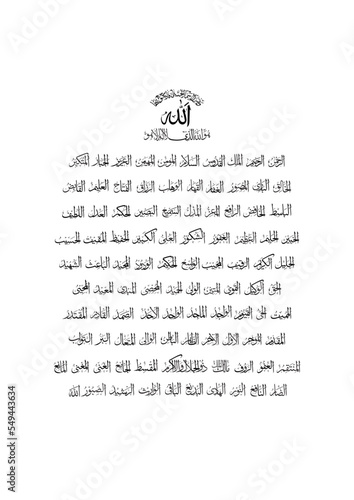 الله
هو الله الذي لا إله إلا هو
الرحمن الرحيم الملك القدوس السلام المؤمن المهيمن العزيز الجبار المتكبر
الخالق البارئ المصور الغفار القهار الوهاب الرزاق الفتاح العليم القابض
الباسط الخافض الرافع المعز المذل السميع البصير الحكم العدل اللطيف
الخبير الحليم العظيم الغفور الشكور العلي الكبير الحفيظ المقيت الحسيب
الجليل الكريم الرقيب المجيب الواسع الحكيم الودود المجيد الباعث الشهيد
الحق الوكيل القوي المتين الولي الحميد المحصي المبدئ المعيد المحيي
المميت الحي القيوم الواجد الماجد الواحد الاحد الصمد القادر المقتدر
المقدم المؤخر الأول الآخر الظاهر الباطن الوالي المتعال البر التواب
المنتقم العفو الرؤوف مالك الملك ذو الجلال والإكرام المقسط الجامع الغني المغني المانع
الضار النافع النور الهادي البديع الباقي الوارث الرشيد الصبور الله
Adobe Stock | #549443634